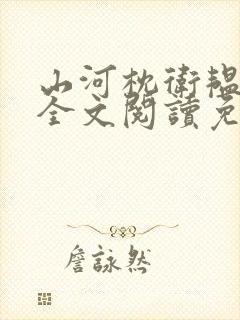 山河枕衛韞
全文閱讀免
詹詠然